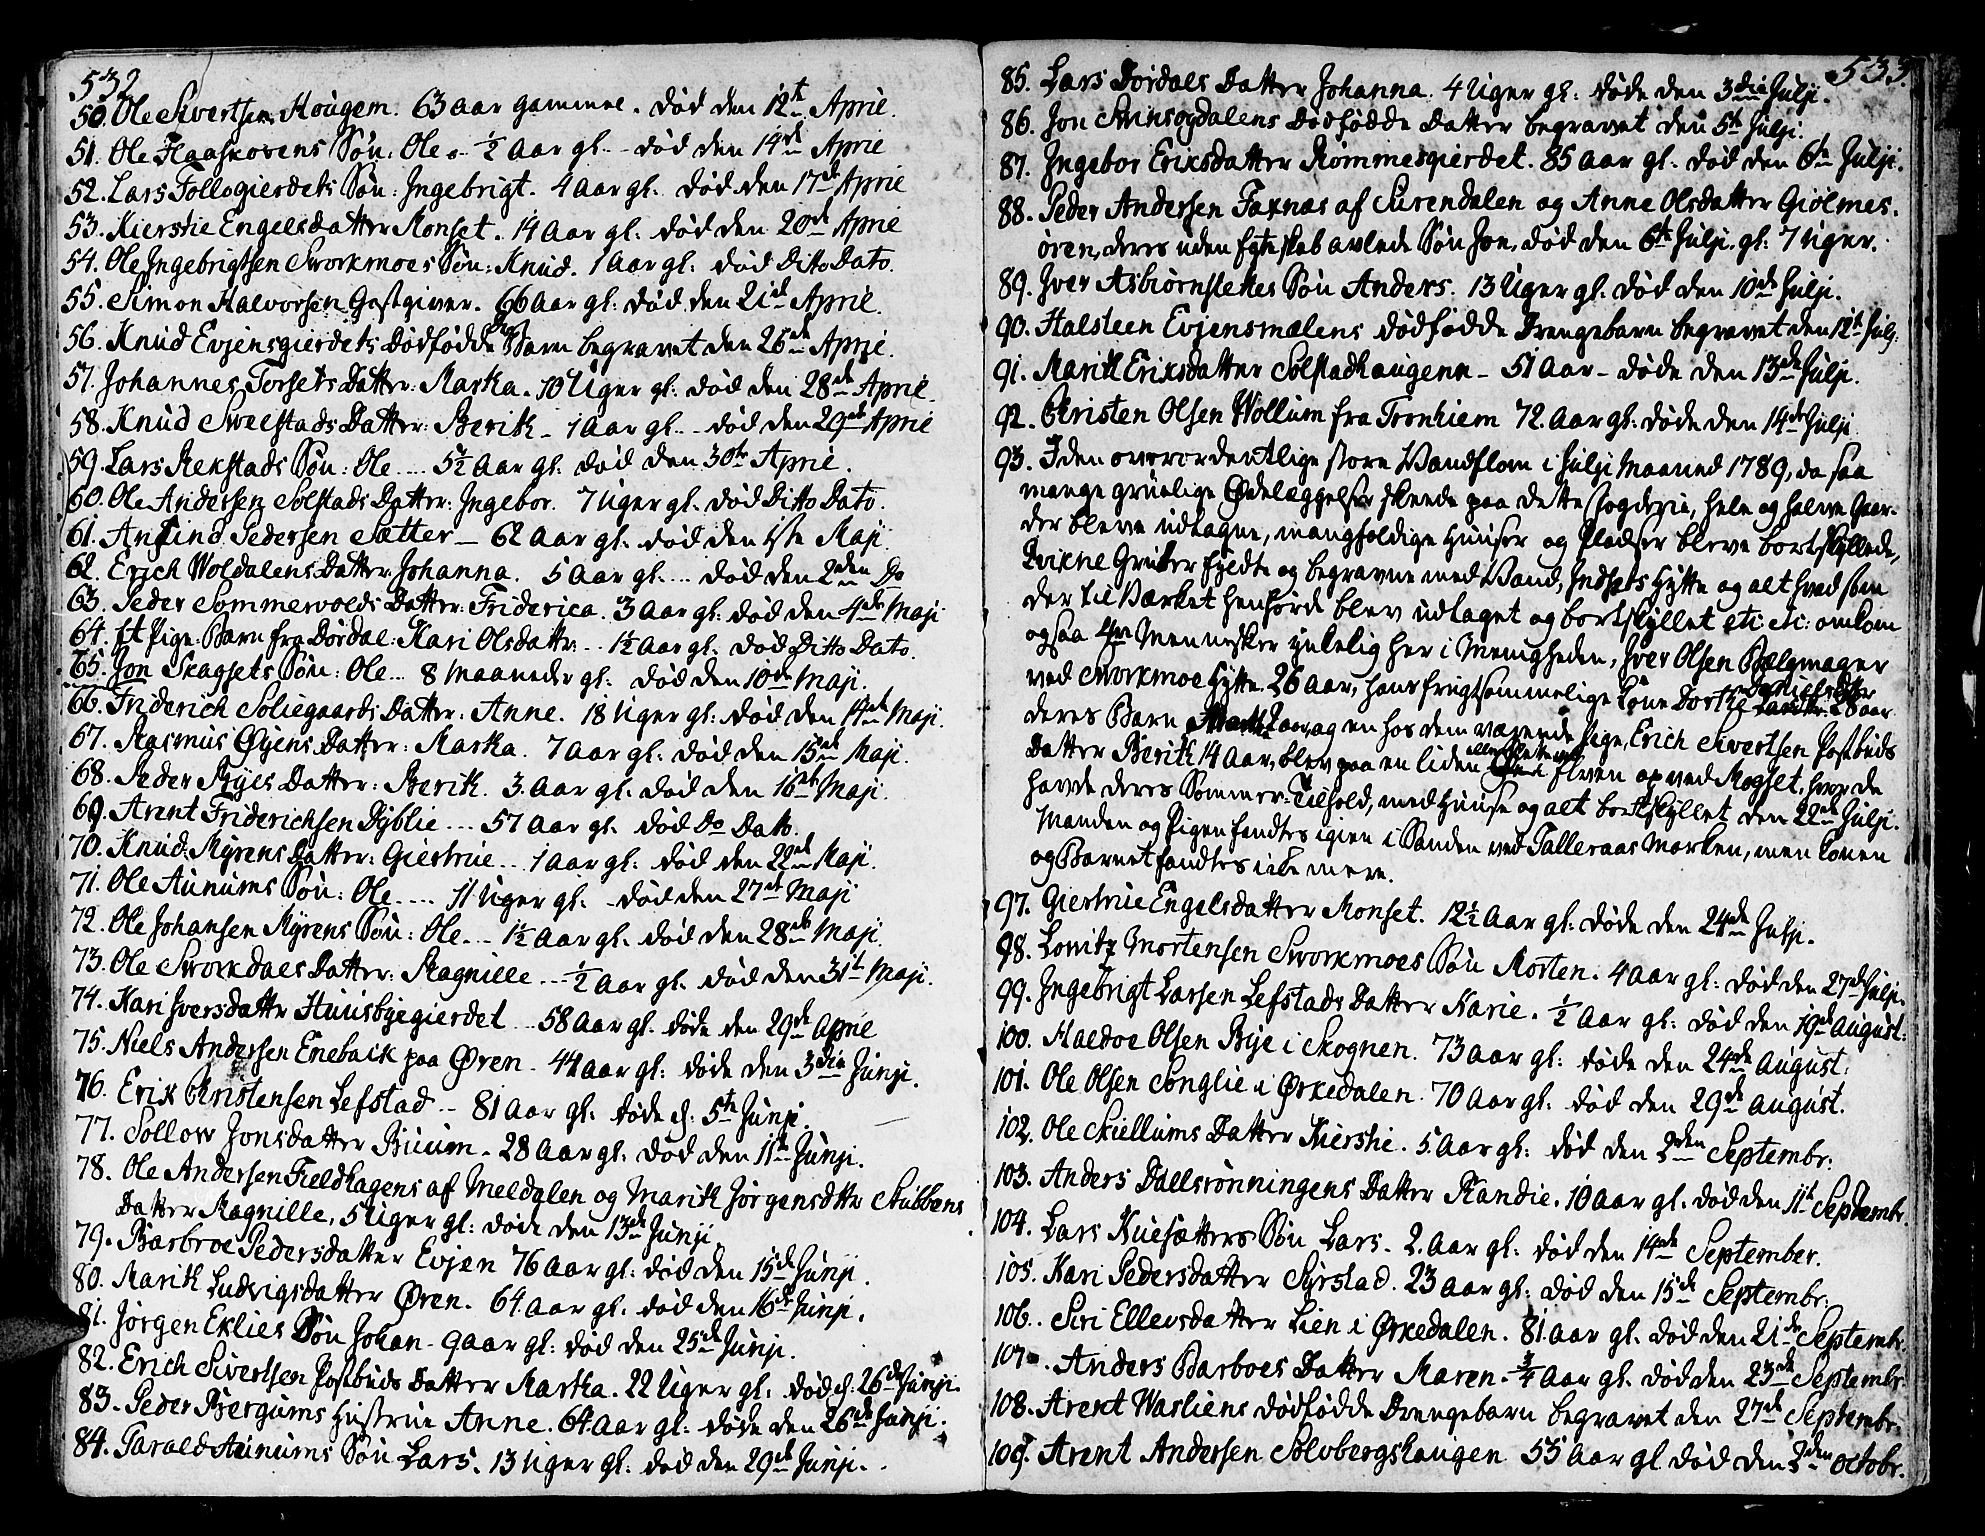 532
50. Ole Sivertsen Hougem. 63 aar gammel. død den 12te April.
51. Ole Haaskovens Søn: Ole.. ½ Aar gl.. død den 14de April
52. Lars Follogierdets Søn: Ingebrigt. 4 Aar gl. død den 17de April
53. Kierstie Engelsdatter Monset. 14 Aar gl: død den 20de April
54. Ole Ingebrigtsen Svorkmoes Søn: Knud. 1 Aar gl: død Ditto Dato.
55. Simon Halvorsen Gastgiver. 66 Aar gl: død den 21de April.
56. Knud Evjensgierdets Dødfødde Barn begravet den 26de April.
57. Johannes Torsets Datter: Marta. 10 Uger gl: død den 28de April.
58. Knud Sveelstads Datter: Berith - 1 Aar gl... død den 29de April
59. Lars Rekstads Søn: Ole.... 5½ Aar gl. død den 30te April.
60. Ole Andersen Solstads Datter: Ingebor. 7 Uger gl: død Ditto Dato.
61. Amund Pedersen Sætter - 62 Aar gl: død den 1ste Maji
62. Erich Woldalens Datter: Johanna. 5 Aar gl.... død den 2den Do
63. Peder Sommervolds Datter: Friderica. 3 Aar gl: død den 4de Maji
64. Et Pige-Barn fra Dørdal: Kari Olsdatter.. 1½ Aar gl: død Ditto Dato.
65. Jon Skagsets Søn: Ole... 8 Maaneder gl. død den 10de Maji.
66. Friderich Soliegaards Datter: Anne. 18 Uger gl: død den 14de Maji.
67. Rasmus Øyens Datter: Marta. 7 Aar gl: død den 15de Maji.
68. Peder Byes Datter: Berith. 3 Aar gl: død den 16de Maji.
69. Arent Friderichsen Dyblie... 57 Aar gl. død Do Dato.
70. Knud Myrens Datter: Giertrue.. 1 Aar gl: død den 22de Maji.
71. Ole Aunums Søn: Ole.... 11 Uger gl. død den 27de Maji
72. Ole Johansen Myrens Søn: Ole... 1½ Aar gl: død den 28de Maji.
73. Ole Svorkdals Datter: Ragnille... ½ Aar gl. død den 31te Maji.
74. Kari Iversdatter Huusbyegierdet.. 58 Aar gl. døde den 29de April
75. Niels Andersen Enebak paa Øren. 44 Aar gl: døde den 3die Junji.
76. Erik Christensen Lefstad.. 81 Aar gl: døde d. 5te Junji.
77. Sollow Jonsdatter Buum. 28 Aar gl: død den 11te Junji.
78. Ole Andersen Fieldhagens af Meldalen og Marith Jørgensdttr Stubbens
Datter Ragnille, 5 Uger gl: døde den 13de Junji.
79. Barbroe Pedersdatter Evjen 76 Aar gl: død den 15de Junji.
80. Marith Ludvigsdatter Øren. 64 Aar gl: død den 16de Junji.
81. Jørgen Eklies Søn Johan - 9 Aar gl: død den 25de Junji.
82. Erich Sivertsen Postbuds Datter Marta. 22 Uger gl: død d. 26de Junji.
83. Peder Bergums Hustrue Anne. 64 Aar gl: døde den 26de Junji.
84. Tarald Aunums Søn Lars. 13 Uger gl: død den 29de Junji.
533.
85. Lars Dørdals Datter Johanna. 4 Uger gl: døde den 3die Julji.
86. Jon Svinsogdalens Dødfødde Datter begravet den 5te Julji.
87. Ingebor Eriksdatter Rømmesgierdet. 85 Aar gl: død den 6te Julji.
88. Peder Andersen Faxnas af Surendalen og Anne Olsdatter Giølmes-
øren, deres uden Egteskab avlede Søn Jon, død den 6te Julji. gl: 7 Uger.
89. Iver Asbiørnslettes Søn Anders. 13 Uger gl: død den 10de Julji.
90. Halsteen Evjensmælens dødfødde Drengebarn begravet den 12te Julj.
91. Marith Eriksdatter Solstadhaugenn - 51 Aar - døde den 13de Julji.
92. Christen Olsen Wollum fra Tronhiem 72 Aar gl: døde den 14de Julji
93. I den overordentlige store Vandflom i Julji Maaned 1789, da saa
mange gruelige Ødelæggelser skeede paa dette Fogderie, hele og halve Gaar-
der bleve udtagne, mangfoldige Huuser og Pladser bleve bortskyllede,
Qvikne Gruber fyldte og begravne med Vand, Indsets Hytte og alt hvad som
der til Værket henhørde blev udtaget og bortskyllet etc etc: omkom
ogsaa 4re Mennesker ynkelig her i Menigheden, Iver Olsen Bælgmager
ved Svorkmoe Hytte 26 Aar, hans frugtsommelige Kone Dorthe Danielsdatter 28 aar
deres Barn 2 aar, og en hos dem værende Pige, Erich Sivertsen Postbuds
Datter Berith 14 Aar, blev paa en liden Elven op ved Mogset, hvor de
havde deres Sommer-Tilhold, med Huuse og alt bortskyllet den 22de Julji.
Manden og Pigen fandtes igien i Sanden ved Talleraas Marken, men Konen
og Barnet fandtes ikke mere.
97. Giertrue Engelsdatter Monset. 12½ Aar gl: døde den 24de Julji.
98. Lowitz Mortensen Svorkmoes Søn Morten. 4 Aar gl: død den 27de Julji.
99. Ingebrigt Larsen Lefstads Datter Karie. ½ Aar gl: død den 19de August:
100. Haldoe Olsen Bye i Skognen. 73 Aar gl: døde den 24de August:
101. Ole Olsen Songlie i Ørkedalen. 70 Aar gl: død den 29de August.
102. Ole Skiellums Datter Kierstie. 5 Aar gl: død den 2den Septembr:
103. Anders Dallsrønningens Datter Randie. 10 Aar gl. død den 11te Septembr.
104. Lars Kuesætters Søn Lars. 2 Aar gl: død den 14de September.
105. Kari Pedersdatter Syrstad. 23 Aar gl: død den 15de Septembr.
106. Siri Ellevsdatter Lien i Ørkedalen. 81 Aar gl. død den 21de Septembr.
107. Anders Barboes Datter Maren. ¾ Aar gl. død den 23de Septembr
108. Arent Wasliens dødfødde Drengebarn begravet den 27de Septembr.
109. Arent Andersen Solvbergshaugen 55 Aar gl død den 2den Octobr.